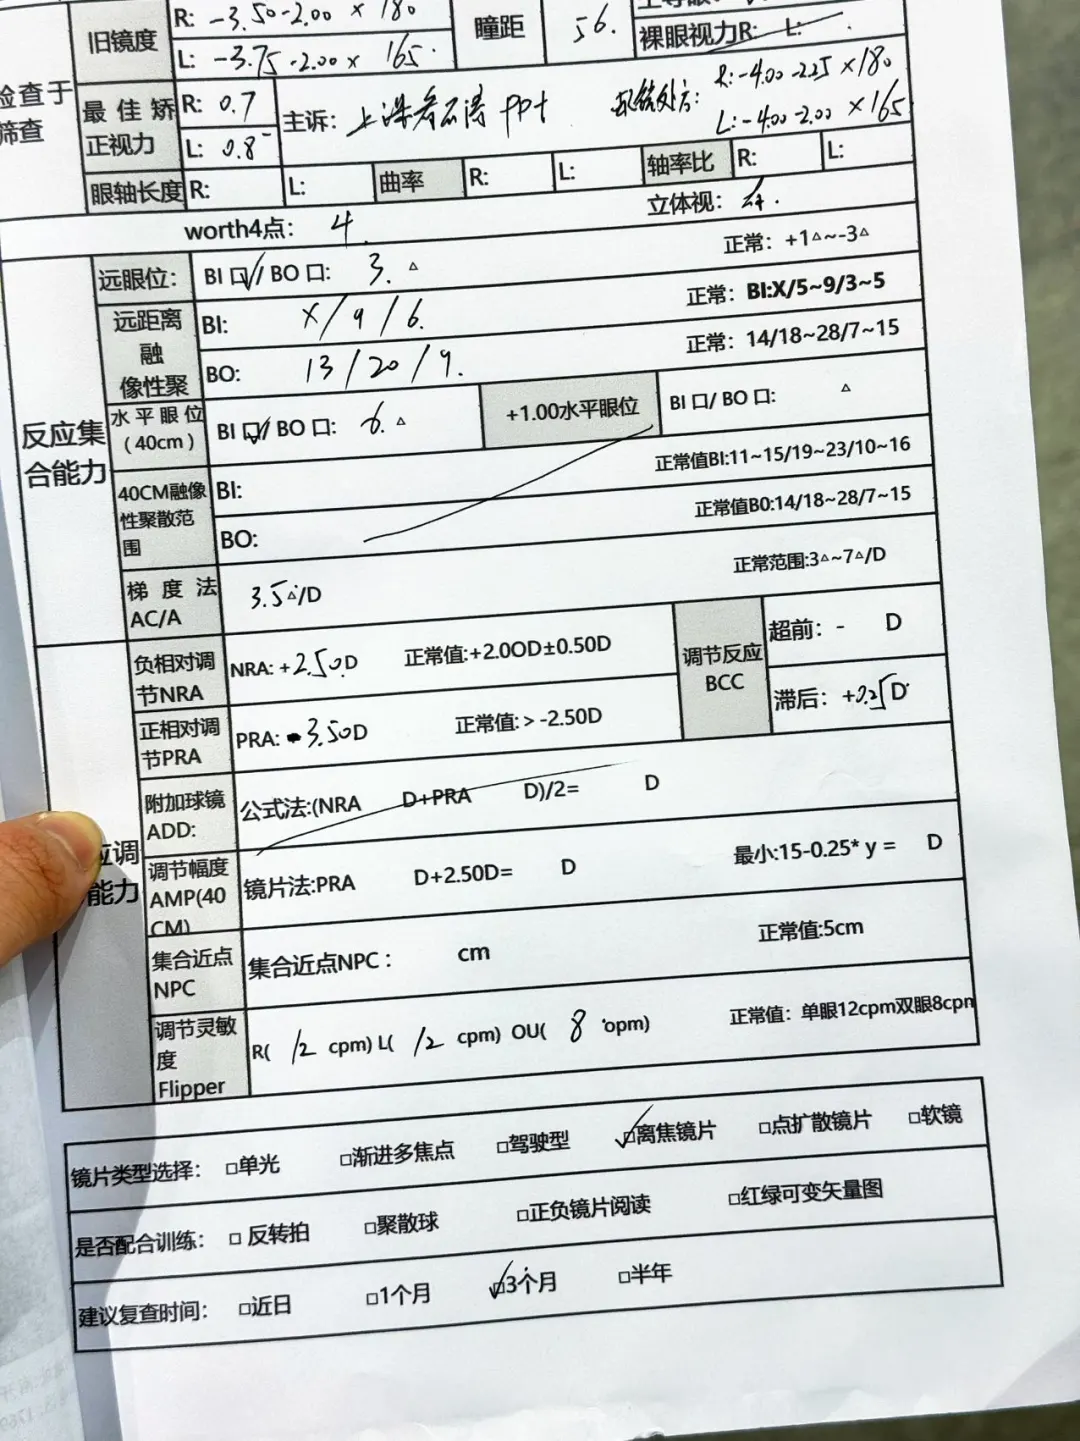 旧镜度 R: -3.50-2.00 × 180
L: -3.75-2.00 × 165.
瞳距 56.
裸眼视力R: L:
检查于
筛查
最佳矫
正视力 R: 0.7
L: 0.8⁻
主诉: 上课看不清PPt
处方: R:-4.00-2.25 ×180
L:-4.00-2.00 ×165
眼轴长度 R: L: 曲率 R: L: 轴率比 R: L:
worth4点: 4. 立体视:
反应集
合能力
远眼位: BI 口✓/ BO 口: 3. △ 正常: +1△~-3△
远距离
融
像性聚
BI: X/9/6. 正常: BI:X/5~9/3~5
BO: 13/20/9. 正常: 14/18~28/7~15
水平眼位
(40cm)
BI 口✓/ BO 口: 6. △ +1.00水平眼位 BI 口/ BO 口: △
40CM融像
性聚散范
围
BI: 正常值BI:11~15/19~23/10~16
BO: 正常值B0:14/18~28/7~15
梯度法
AC/A
3.5△/D 正常范围:3△~7△/D
应调
能力
负相对调
节NRA
NRA: +2.50D 正常值:+2.0OD±0.50D
正相对调
节PRA
PRA: -3.50D 正常值:> -2.50D
调节反应
BCC
超前: - D
滞后: +0.25D
附加球镜
ADD:
公式法:(NRA D+PRA D)/2= D
调节幅度
AMP(40
CM)
镜片法:PRA D+2.50D= D 最小:15-0.25* y = D
集合近点
NPC
集合近点NPC: cm 正常值:5cm
调节灵敏
度
Flipper
R( 12 cpm) L( 12 cpm) OU( 8 opm) 正常值: 单眼12cpm双眼8cpm
镜片类型选择: □单光 □渐进多焦点 □驾驶型 ☑离焦镜片 □点扩散镜片 □软镜
是否配合训练: □ 反转拍 □聚散球 □正负镜片阅读 □红绿可变矢量图
建议复查时间: □近日 □1个月 ☑3个月 □半年